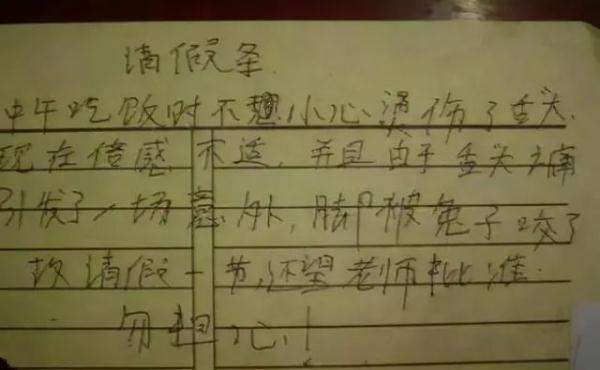 请假条
中午吃饭时不小心烫伤了舌头.
现在倍感不适,并且由于舌头痛
引发了一场意外,脚被兔子咬了
故请假一节,还望老师批准.
勿担心!